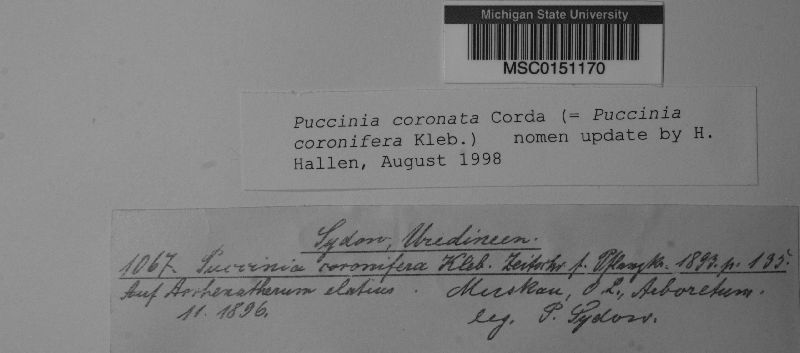 Michigan State University
MSC0151170
Puccinia coronata Corda (= Puccinia
coronifera Kleb.) nomen update by H.
Hallen, August 1998
Sydow, Uredineen.
1067. Puccinia coronifera Kleb. Zeitschr. f. Pflanzkr. 1893. p. 135.
Auf Arrhenatherum elatius. Muskau, O.L., Arboretum.
11. 1896. leg. P. Sydow.